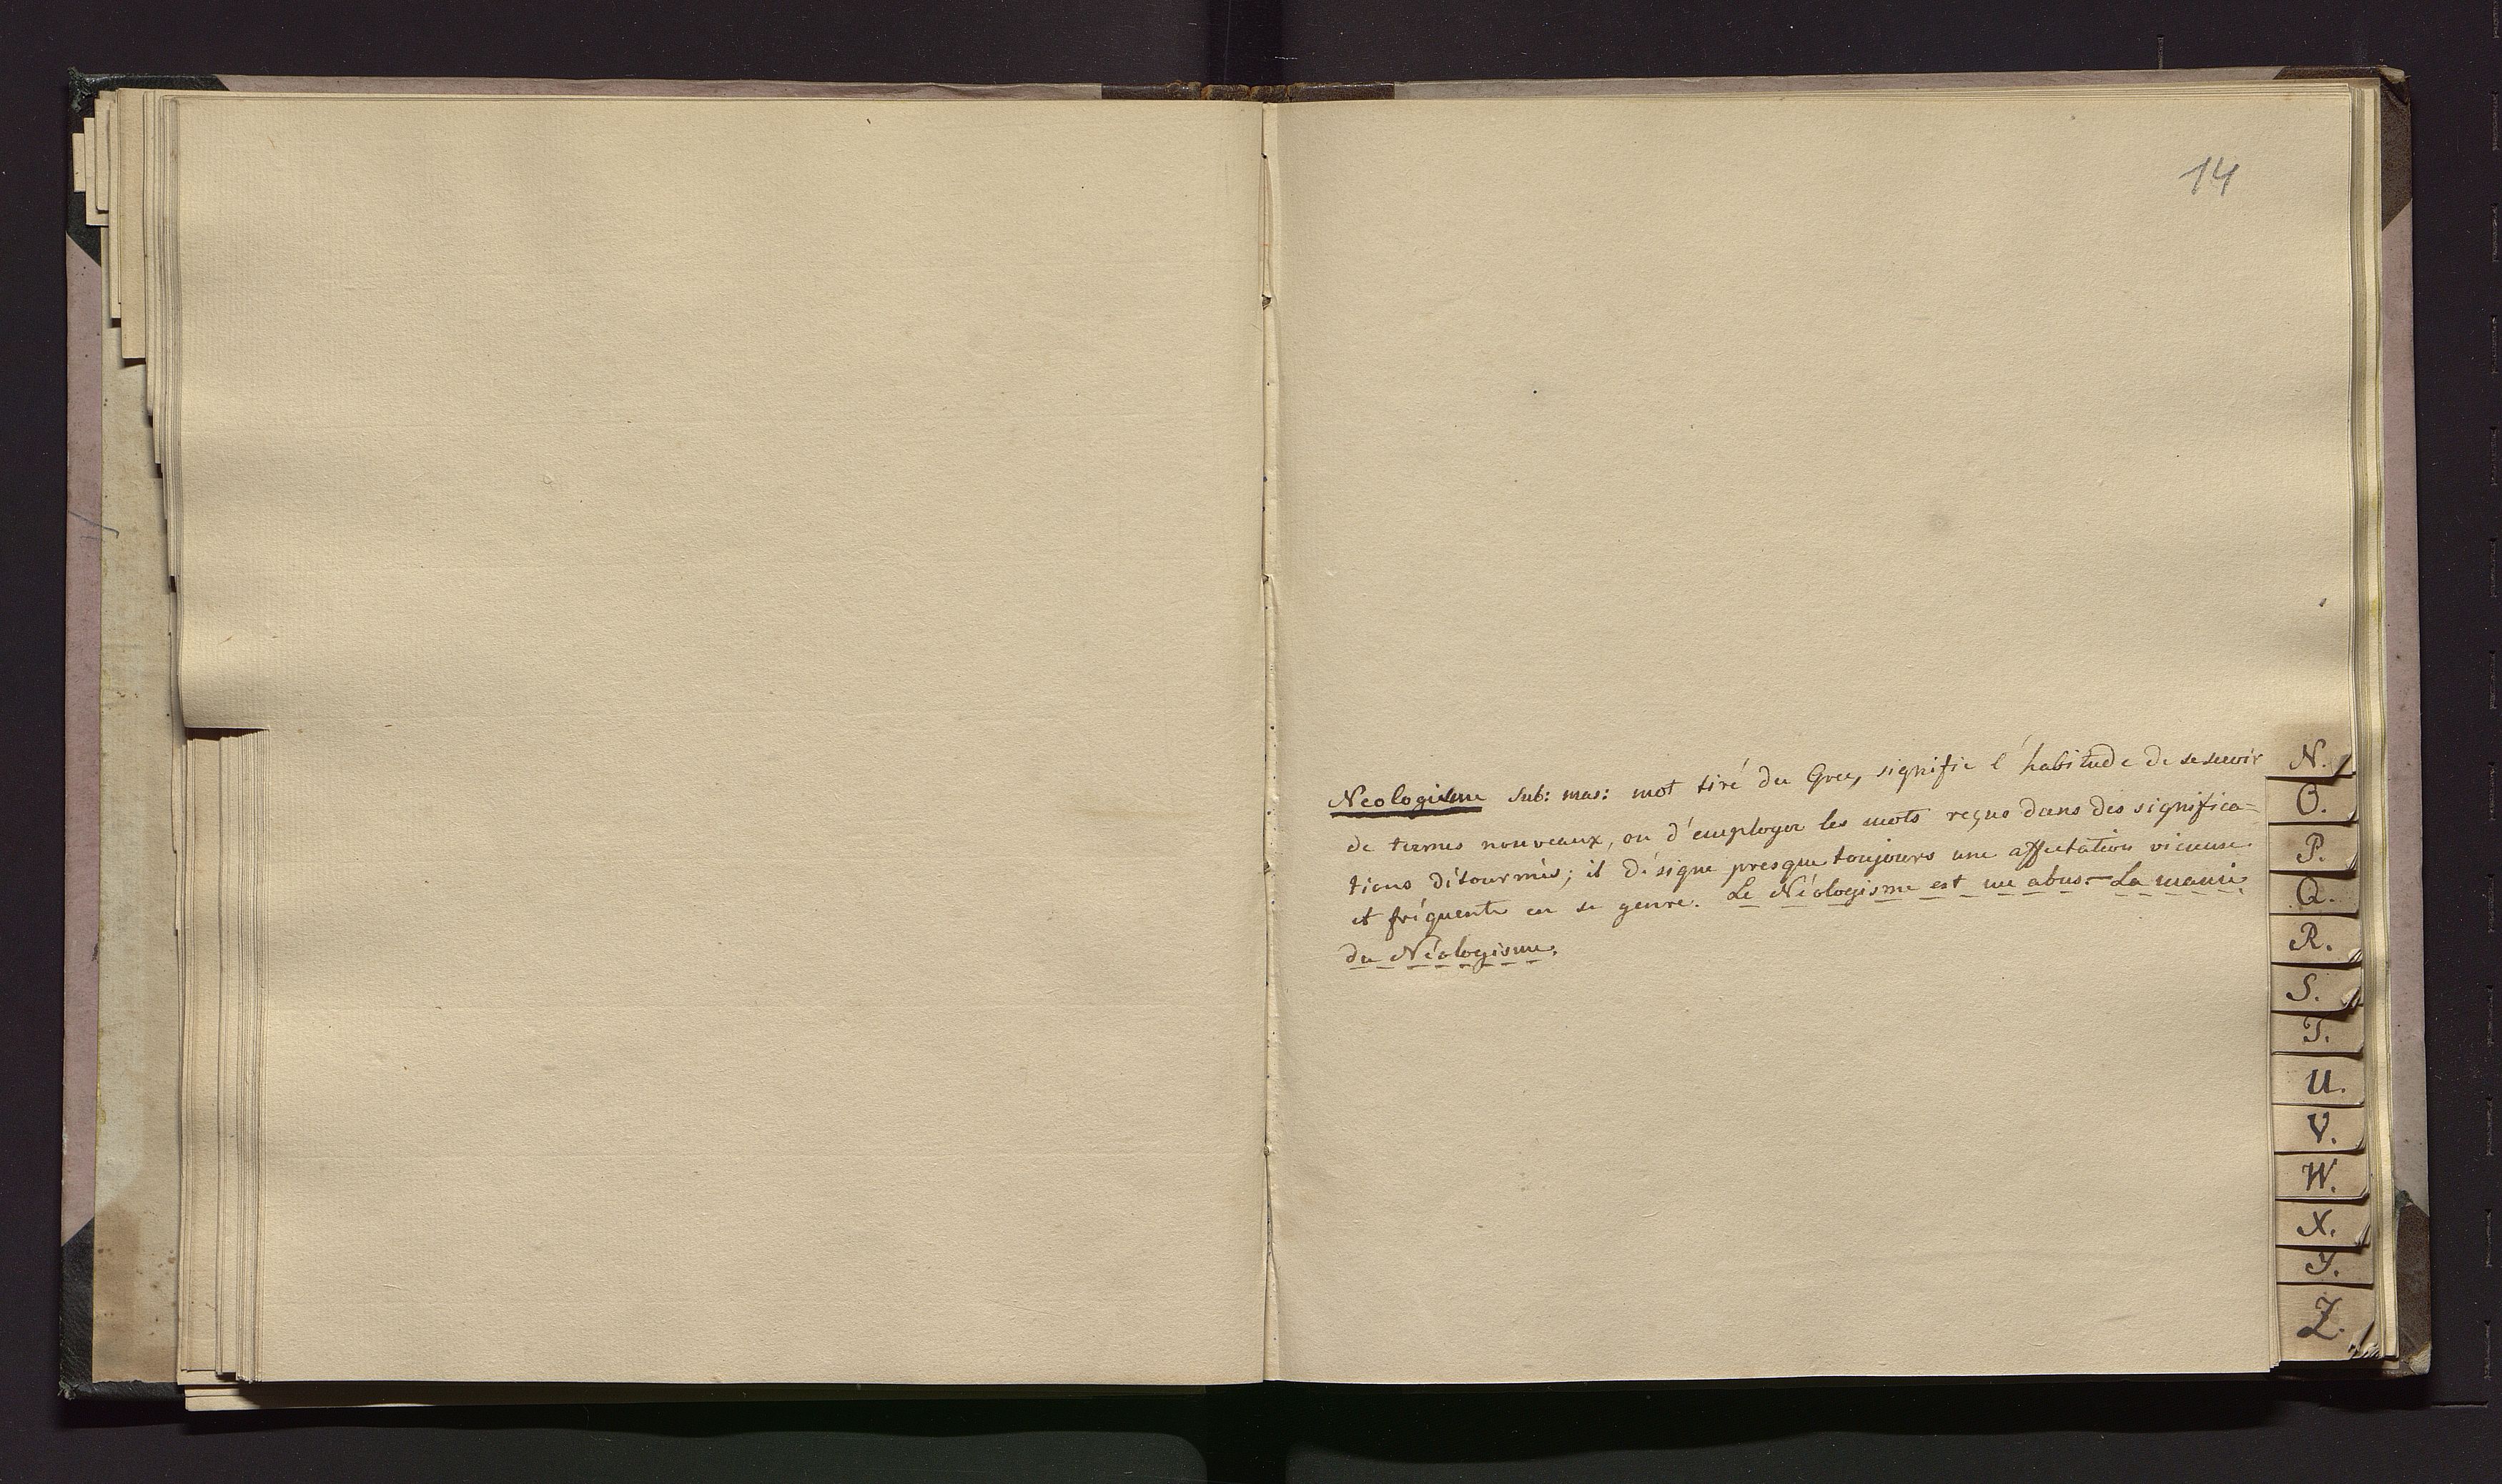 14
Neologisme sub: mas: mot tiré du Grec, signifie l'habitude de se servir
de termes nouveaux, ou d'employer les mots reçus dans des significa=
tions détournés; il désigne presque toujours une affectation vicieuse
et fréquente en se genre. Le Néologisme est un abus. – La manie
du Néologisme.
N.
O.
P.
Q.
R.
S.
T.
U.
V.
W.
X.
Y.
Z.